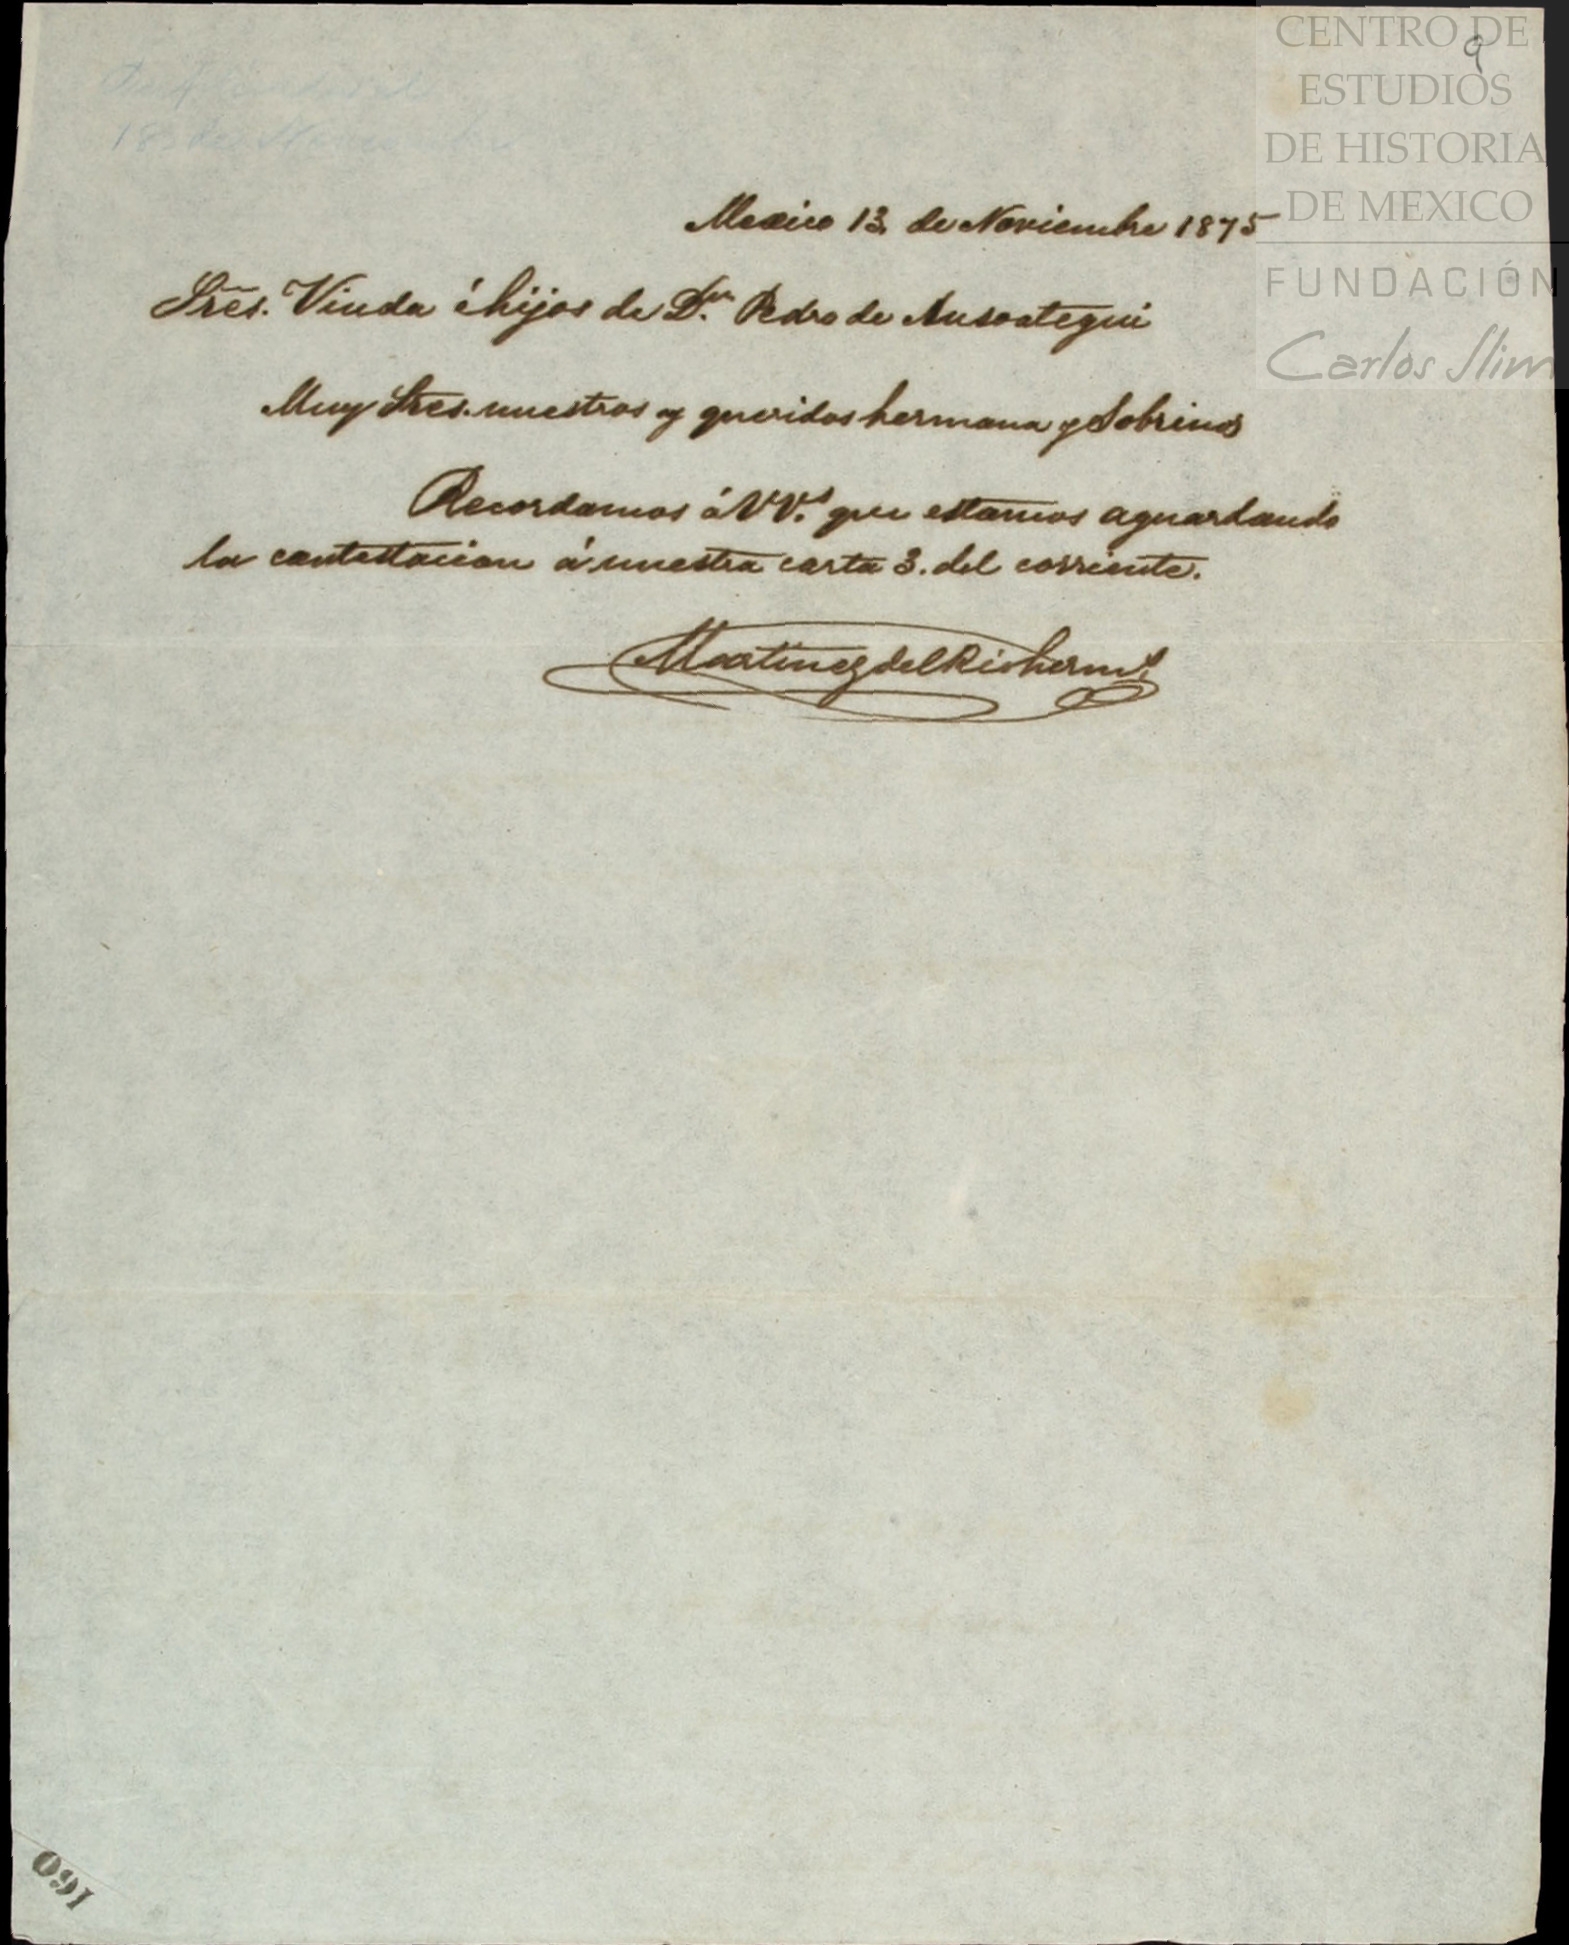 CENTRO DE
ESTUDIOS
DE HISTORIA
DE MEXICO
FUNDACIÓN
Carlos Slim
9
18 de Noviembre
Mexico 13. de Noviembre 1875
Sres. Viuda é hijos de Dn. Pedro de Ansoategui
Muy Sres. nuestros y queridos hermana y Sobrinos
Recordamos á VVs. que estamos aguardando
la contestacion á nuestra carta 3. del corriente.
Martinez del Rio herms.
160